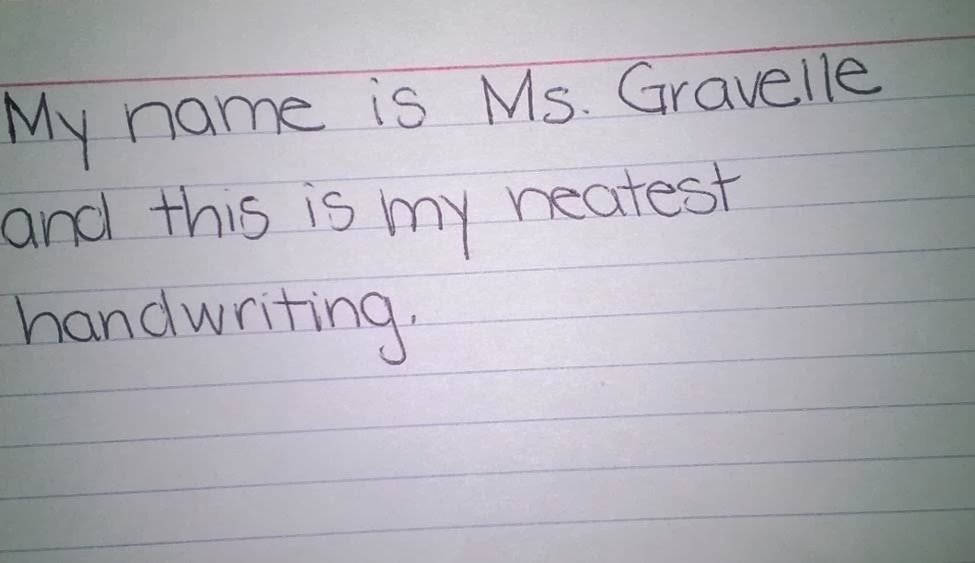 My name is Ms. Gravelle
and this is my neatest
handwriting.